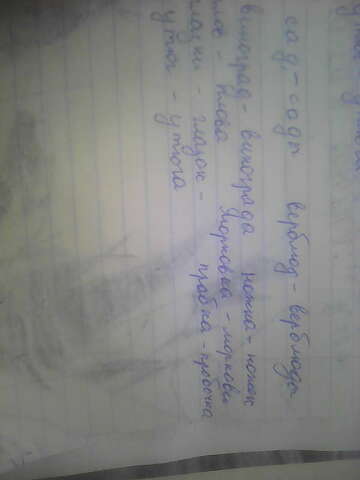 сад-сады верблюд-верблюды
виноград-винограда ножка-ножек
плов-плова морковка-морковь
глазки-глазок- пробка-пробочка
утюг-утюга